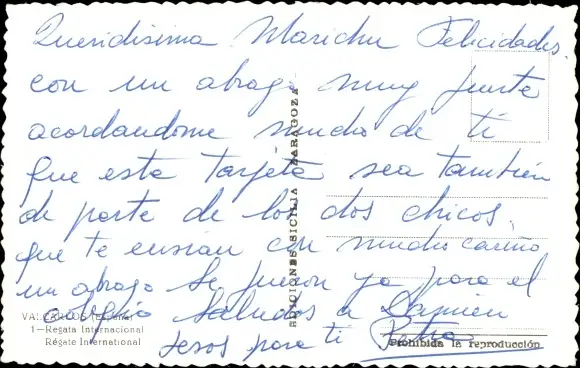 Queridisima Marichu Felicidades.
con un abrazo muy fuerte
acordandome mucho de ti
que esta Tarjeta sea también
de parte de los dos chicos.
que te envian con mucho cariño
un abrazo se fueron ya para el
colegio Saludos a
Besos para ti Petra
EDICIONES SICILIA ZARAGOZA
VALCARLOS (España)
1—Regata Internacional
Régate International
Prohibida la reproducción